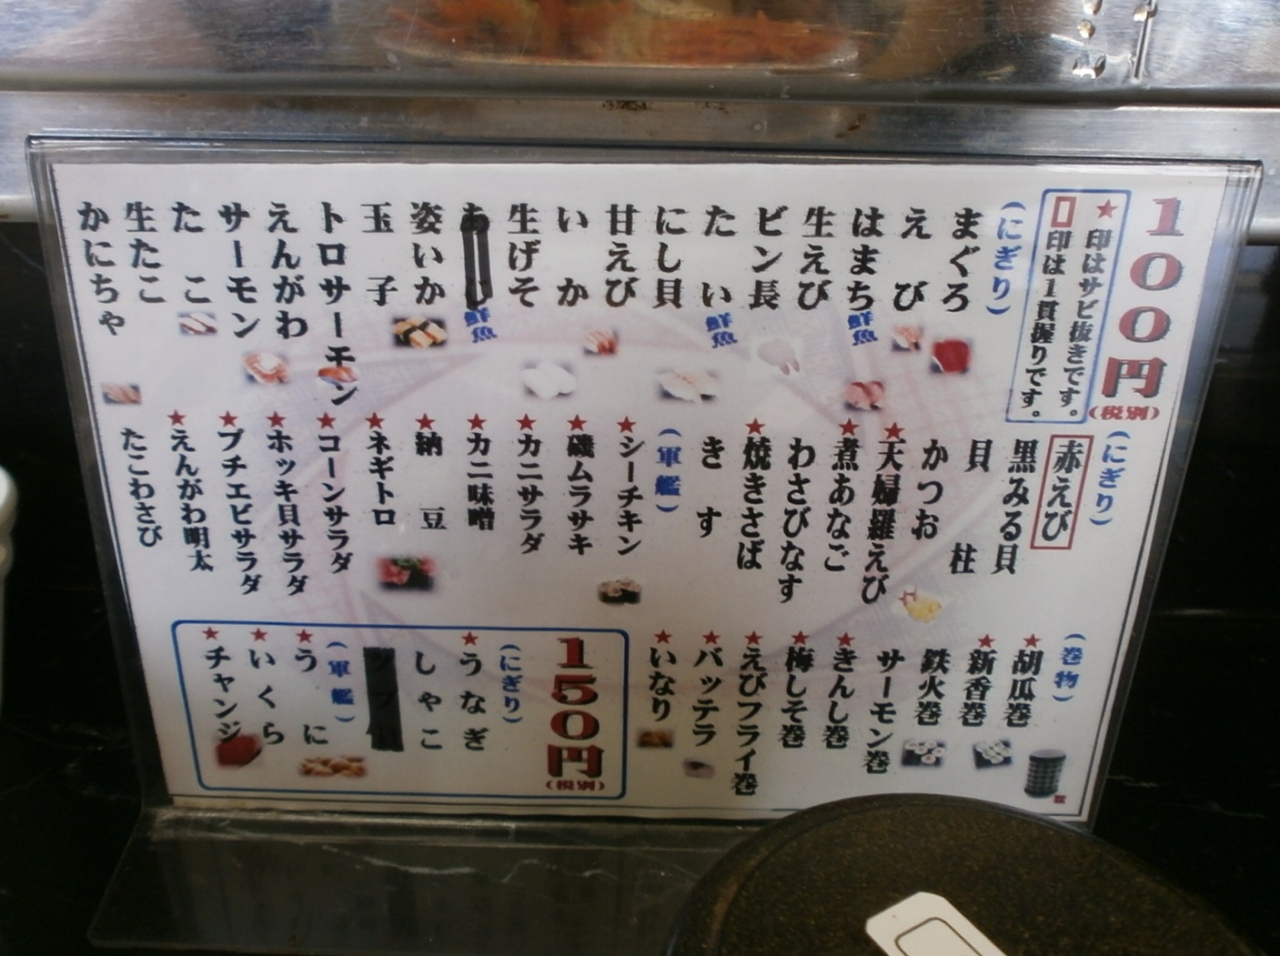 100円
(税別)
★印はサビ抜きです。
印は1貫握りです。
(にぎり)
まぐろ
えび
はまち
鮮魚
生えび
ビン長
たい
鮮魚
にし貝
甘えび
いか
生げそ
鮮魚
姿いか
玉子
トロサーモン
えんがわ
サーモン
たこ
生たこ
かにちゃ
(にぎり)
赤えび
黒みる貝
貝柱
かつお
★天婦羅えび
★煮あなご
わさびなす
★焼きさば
きす
(軍艦)
★シーチキン
★磯ムラサキ
★カニサラダ
★カニ味噌
★納豆
★ネギトロ
★コーンサラダ
★ホッキ貝サラダ
★プチエビサラダ
★えんがわ明太
たこわさび
(巻物)
★胡瓜巻
★新香巻
鉄火巻
サーモン巻
★きんし巻
★梅しそ巻
★えびフライ巻
★バッテラ
★いなり
150円
(税別)
(にぎり)
★うなぎ
しゃこ
(軍艦)
★うに
★いくら
★チャンジ